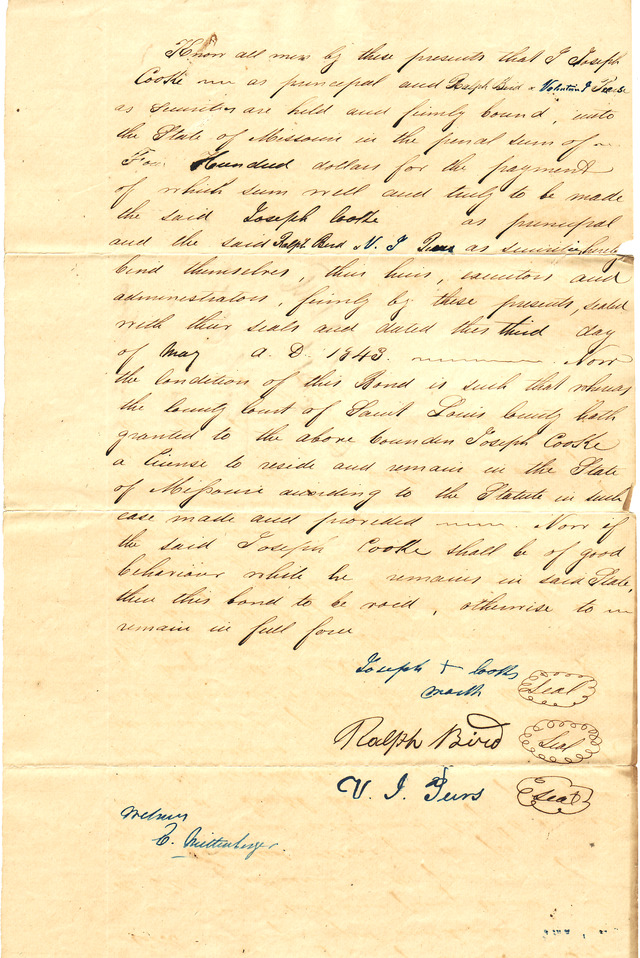 Know all men by these presents that I Joseph
Cooke as principal and Ralph Bird &
as Securities are held and firmly bound, unto
the State of Missouri in the penal sum of
Hundred dollars for the payment
of which sum well and truly to be made
the said Joseph Cooke as principal
and the said Ralph Bird as securities hereby
bind themselves, their heirs, executors and
administrators, firmly by these presents, sealed
with their seals and dated this third day
of May A. D. 1843. Now
the condition of this Bond is such that whereas
the County Court of Saint Louis County hath
granted to the above bounden Joseph Cooke
a license to reside and remain in the State
of Missouri according to the Statute in such
case made and provided . Now if
the said Joseph Cooke shall be of good
behaviour while he remains in said State,
then this bond to be void, otherwise to
remain in full force
Joseph + Cooks Seal
mark
Ralph Bird Seal
V. J. Peers Seal
Witness